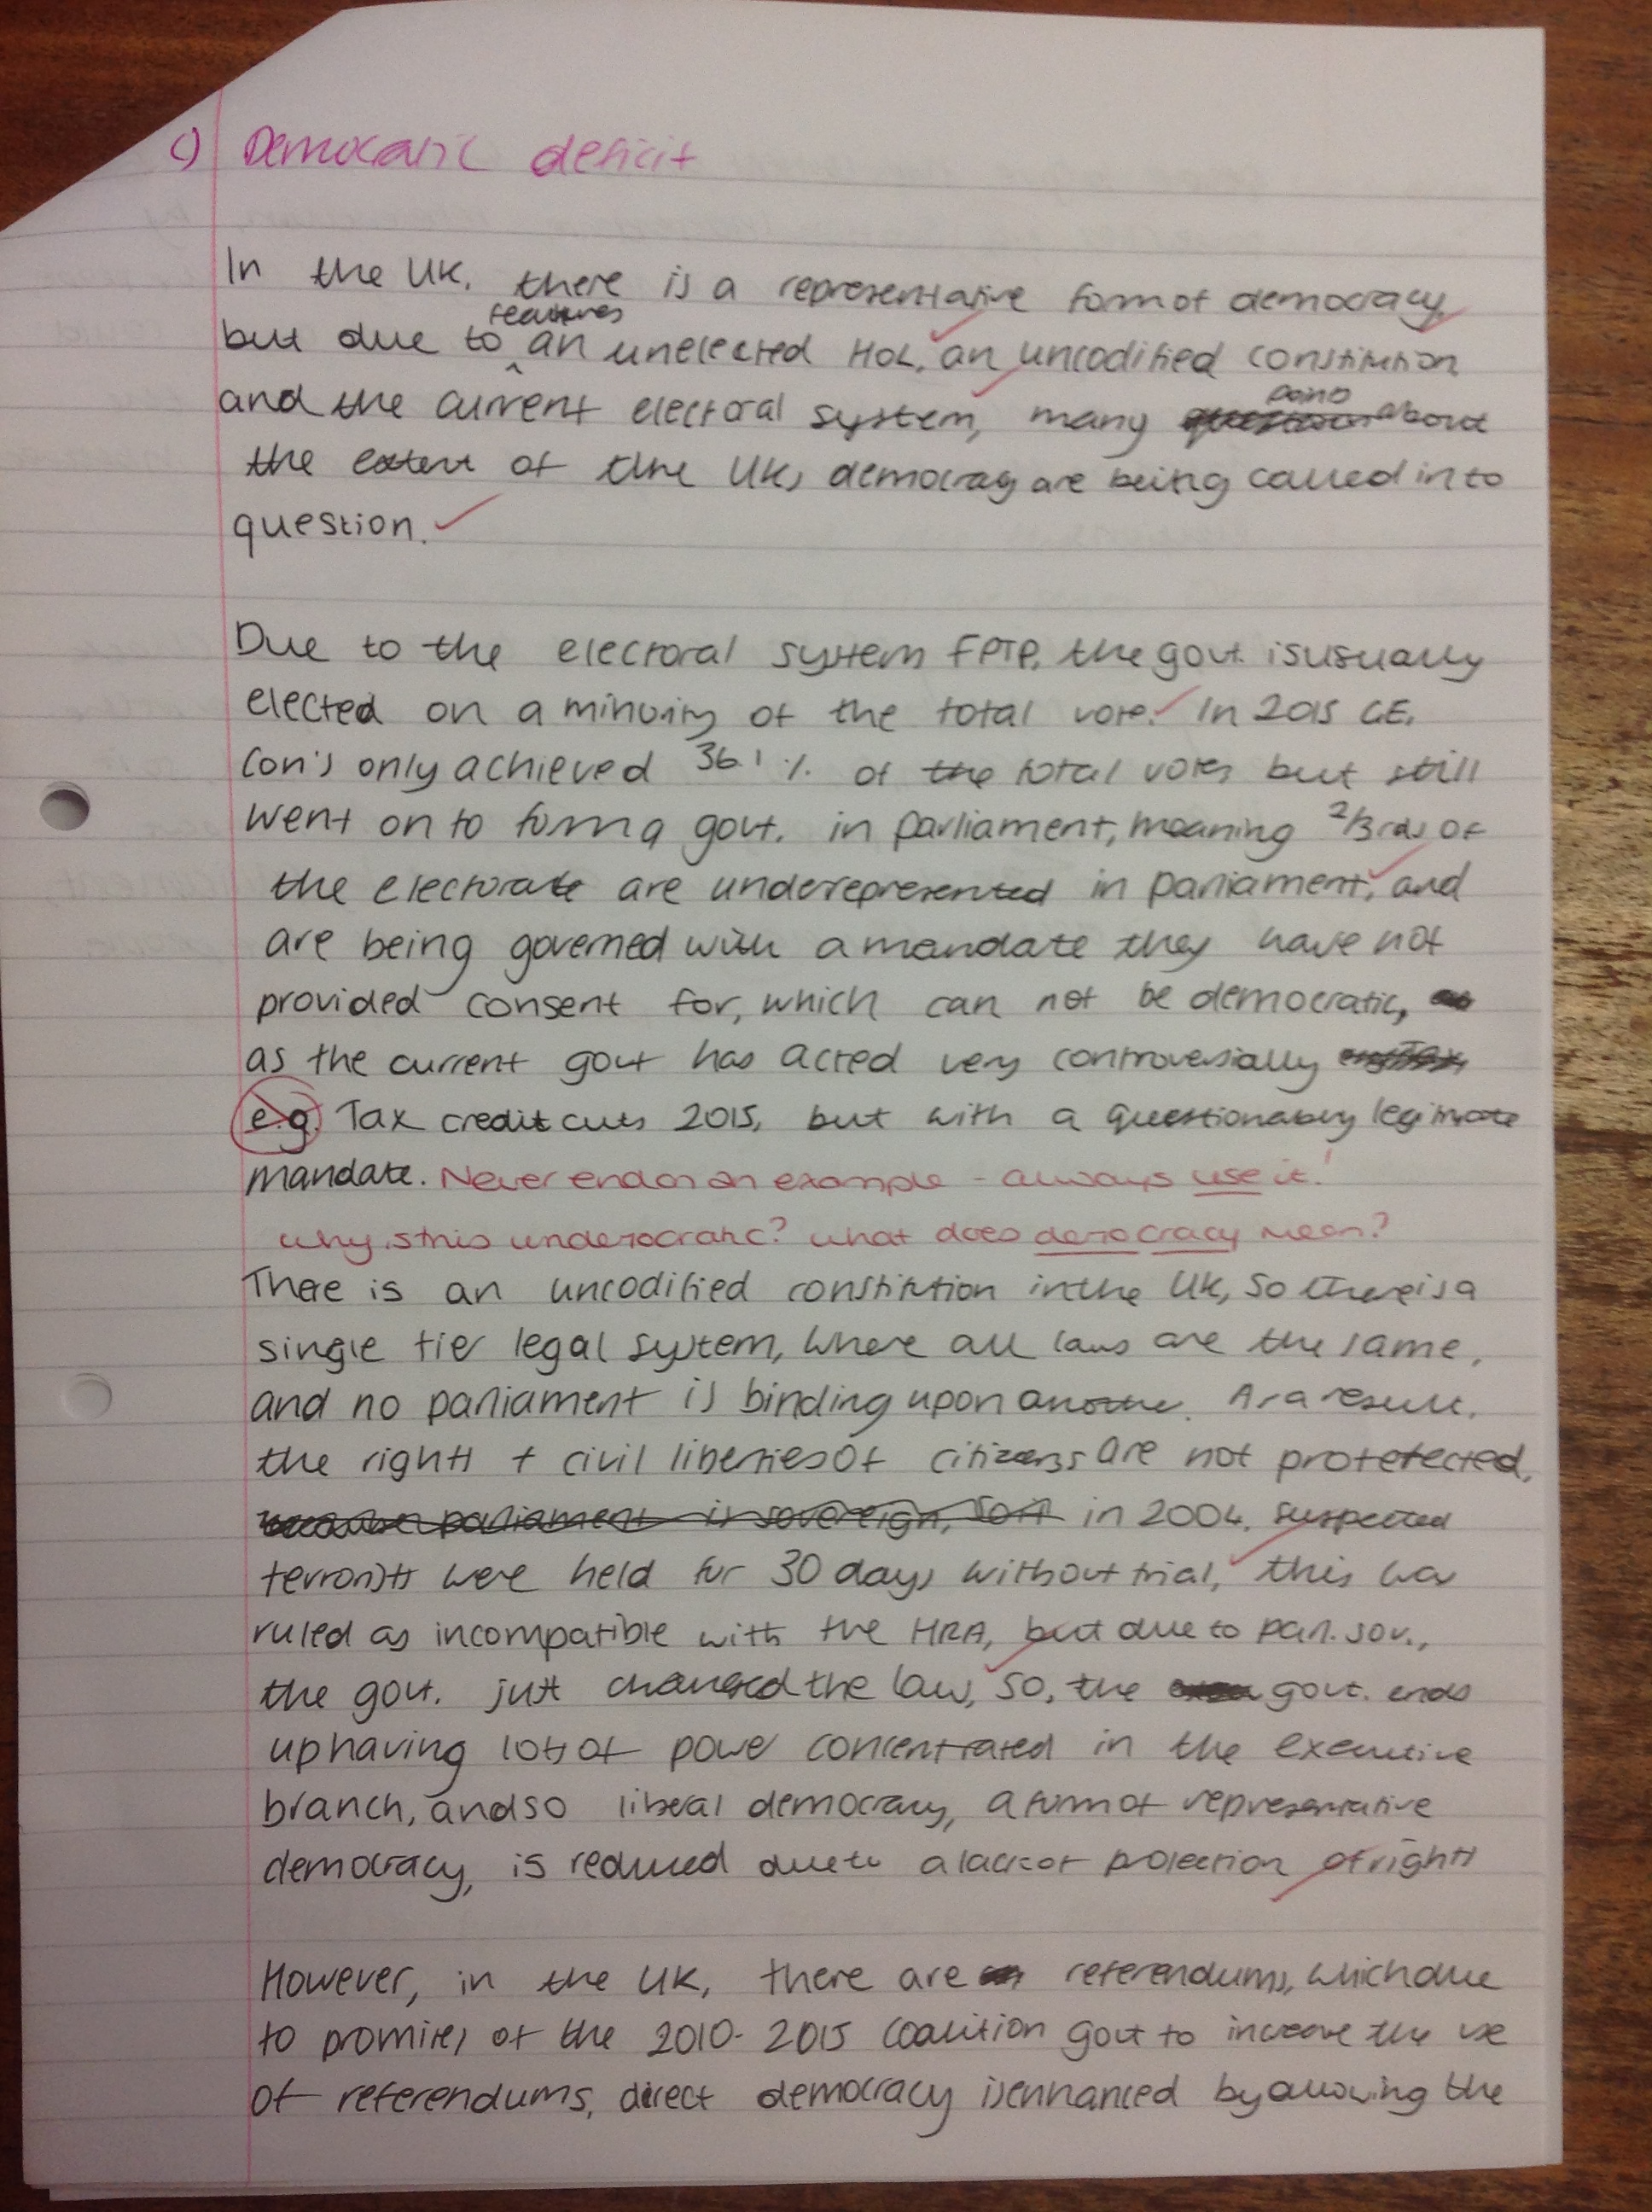 c) Democratic deficit
In the UK, there is a representative form of democracy,
but due to features an unelected HoL, an uncodified constitution
and the current electoral system, many about
the extent of the UK's democracy are being called into
question.
Due to the electoral system FPTP, the govt. is usually
elected on a minority of the total vote. In 2015 GE,
Con's only achieved 36.1% of the total votes but still
went on to form a govt. in parliament, meaning 2/3rds of
the electorate are underepresented in parliament, and
are being governed with a mandate they have not
provided consent for, which can not be democratic,
as the current govt has acted very controversially
e.g. Tax credit cuts 2015, but with a questionably legitimate
mandate. Never end on an example - always use it!
why is this undemocratic? what does democracy mean?
There is an uncodified constitution in the UK, so there is a
single tier legal system, where all laws are the same,
and no parliament is binding upon another. As a result,
the rights + civil liberties of citizens are not protetected,
because parliament is sovereign, so it in 2004, suspected
terrorists were held for 30 days without trial, this was
ruled as incompatible with the HRA, but due to parl. sov.,
the govt. just changed the law, so, the govt. ends
up having lots of power concentrated in the executive
branch, and so liberal democracy, a form of representative
democracy, is reduced due to a lack of protection of rights
However, in the UK, there are referendums, which due
to promises of the 2010-2015 coalition govt to increase the use
of referendums, direct democracy is enhanced by allowing the